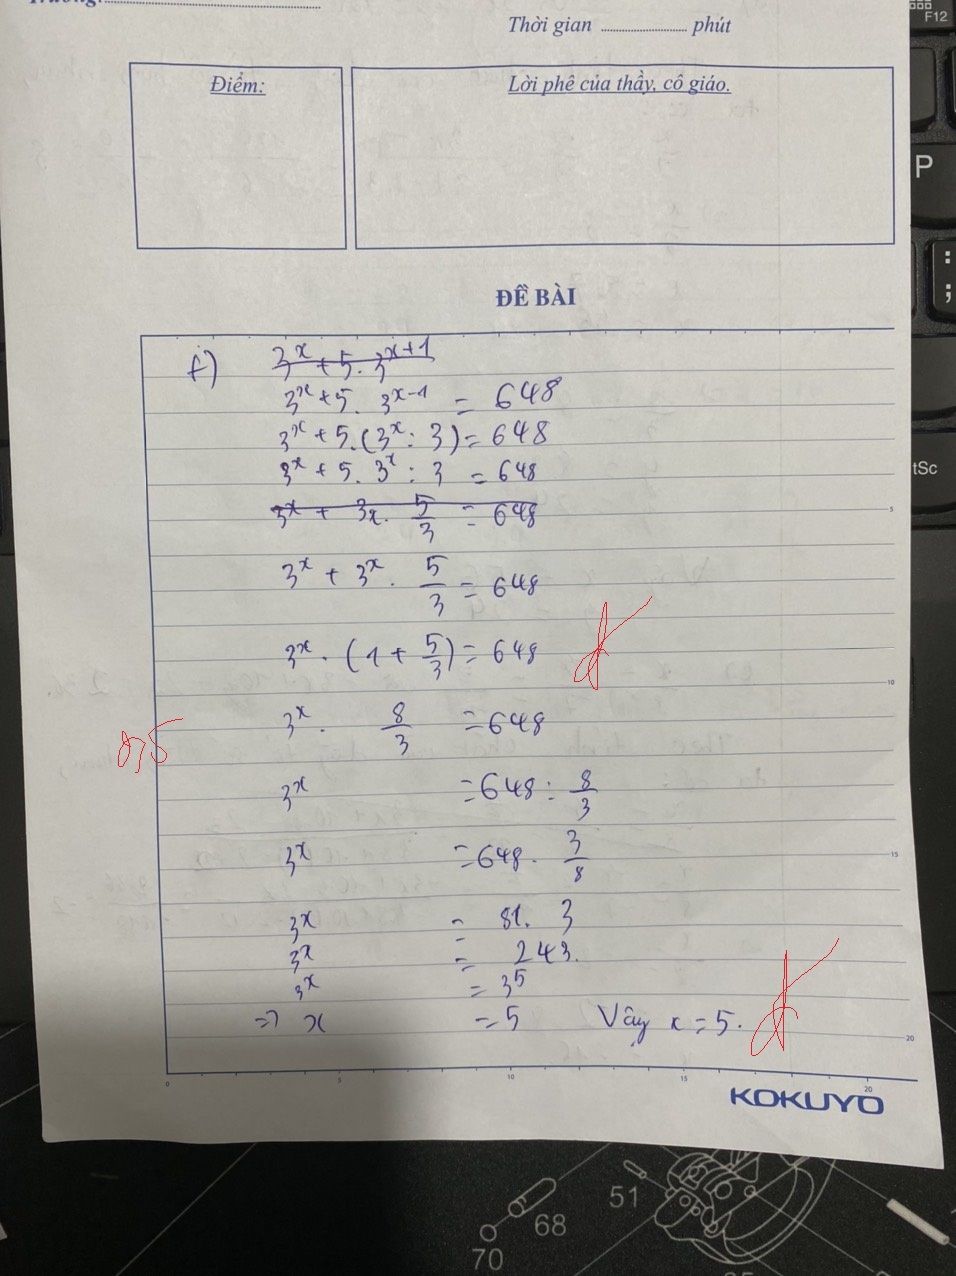 F12
Thời gian .......................... phút
P
Điểm:
Lời phê của thầy, cô giáo.
:
;
ĐỀ BÀI
f) 3^x + 5. 3^{x+1}
3^x + 5. 3^{x-1} = 648
3^x + 5.(3^x : 3) = 648
3^x + 5. 3^x : 3 = 648
tSc
3^x + 3x. 5/3 = 648
5
3^x + 3^x . 5/3 = 648
3^x . (1 + 5/3) = 648 đ
10
0,5
3^x . 8/3 = 648
3^x = 648 : 8/3
3^x = 648 . 3/8
15
3^x = 81. 3
3^x = 243.
3^x = 3^5
=> x = 5 Vậy x = 5. đ
20
0 5 10 15 20
KOKUYO
51
68
70